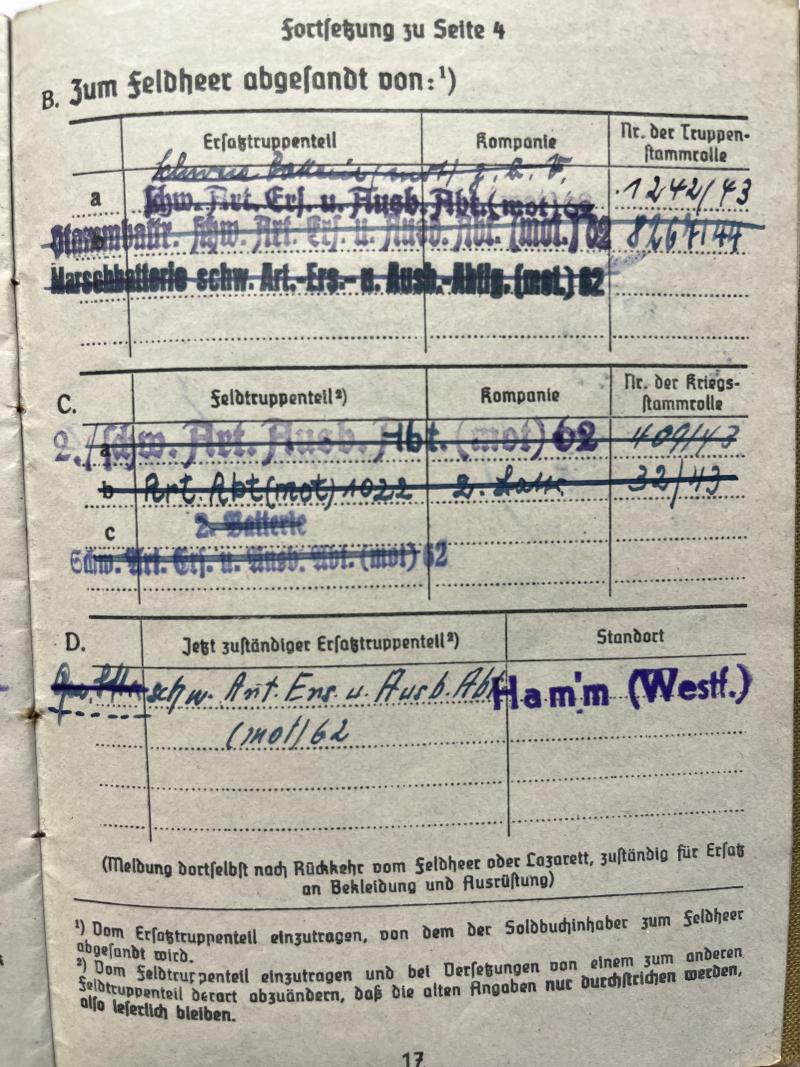 Fortsetzung zu Seite 4
B. Zum Feldheer abgesandt von:¹)
Ersatztruppenteil Kompanie Nr. der Truppen-
stammrolle
Schwere Batterie (mot) z. b. V.
a schw. Art. Ers. u. Ausb. Abt. (mot) 62 1242/43
b Stammbattr. schw. Art. Ers. u. Ausb. Abt. (mot.) 62 8267/44
Marschbatterie schw. Art.-Ers.- u. Ausb.-Abtlg. (mot.) 62
C. Feldtruppenteil²) Kompanie Nr. der Kriegs-
stammrolle
a 2./schw. Art. Ausb. Abt. (mot) 62 409/43
b Art. Abt (mot) 1022 2. 32/43
c 2. Batterie
Schw. Art. Ers. u. Ausb. Abt. (mot) 62
D. Jetzt zuständiger Ersatztruppenteil²) Standort
schw. Art. Ers. u. Ausb. Abt. Hamm (Westf.)
(mot) 62
(Meldung dortselbst nach Rückkehr vom Feldheer oder Lazarett, zuständig für Ersatz
an Bekleidung und Ausrüstung)
¹) Vom Ersatztruppenteil einzutragen, von dem der Soldbuchinhaber zum Feldheer
abgesandt wird.
²) Vom Feldtruppenteil einzutragen und bei Versetzungen von einem zum anderen
Feldtruppenteil derart abzuändern, daß die alten Angaben nur durchstrichen werden,
also leserlich bleiben.
17